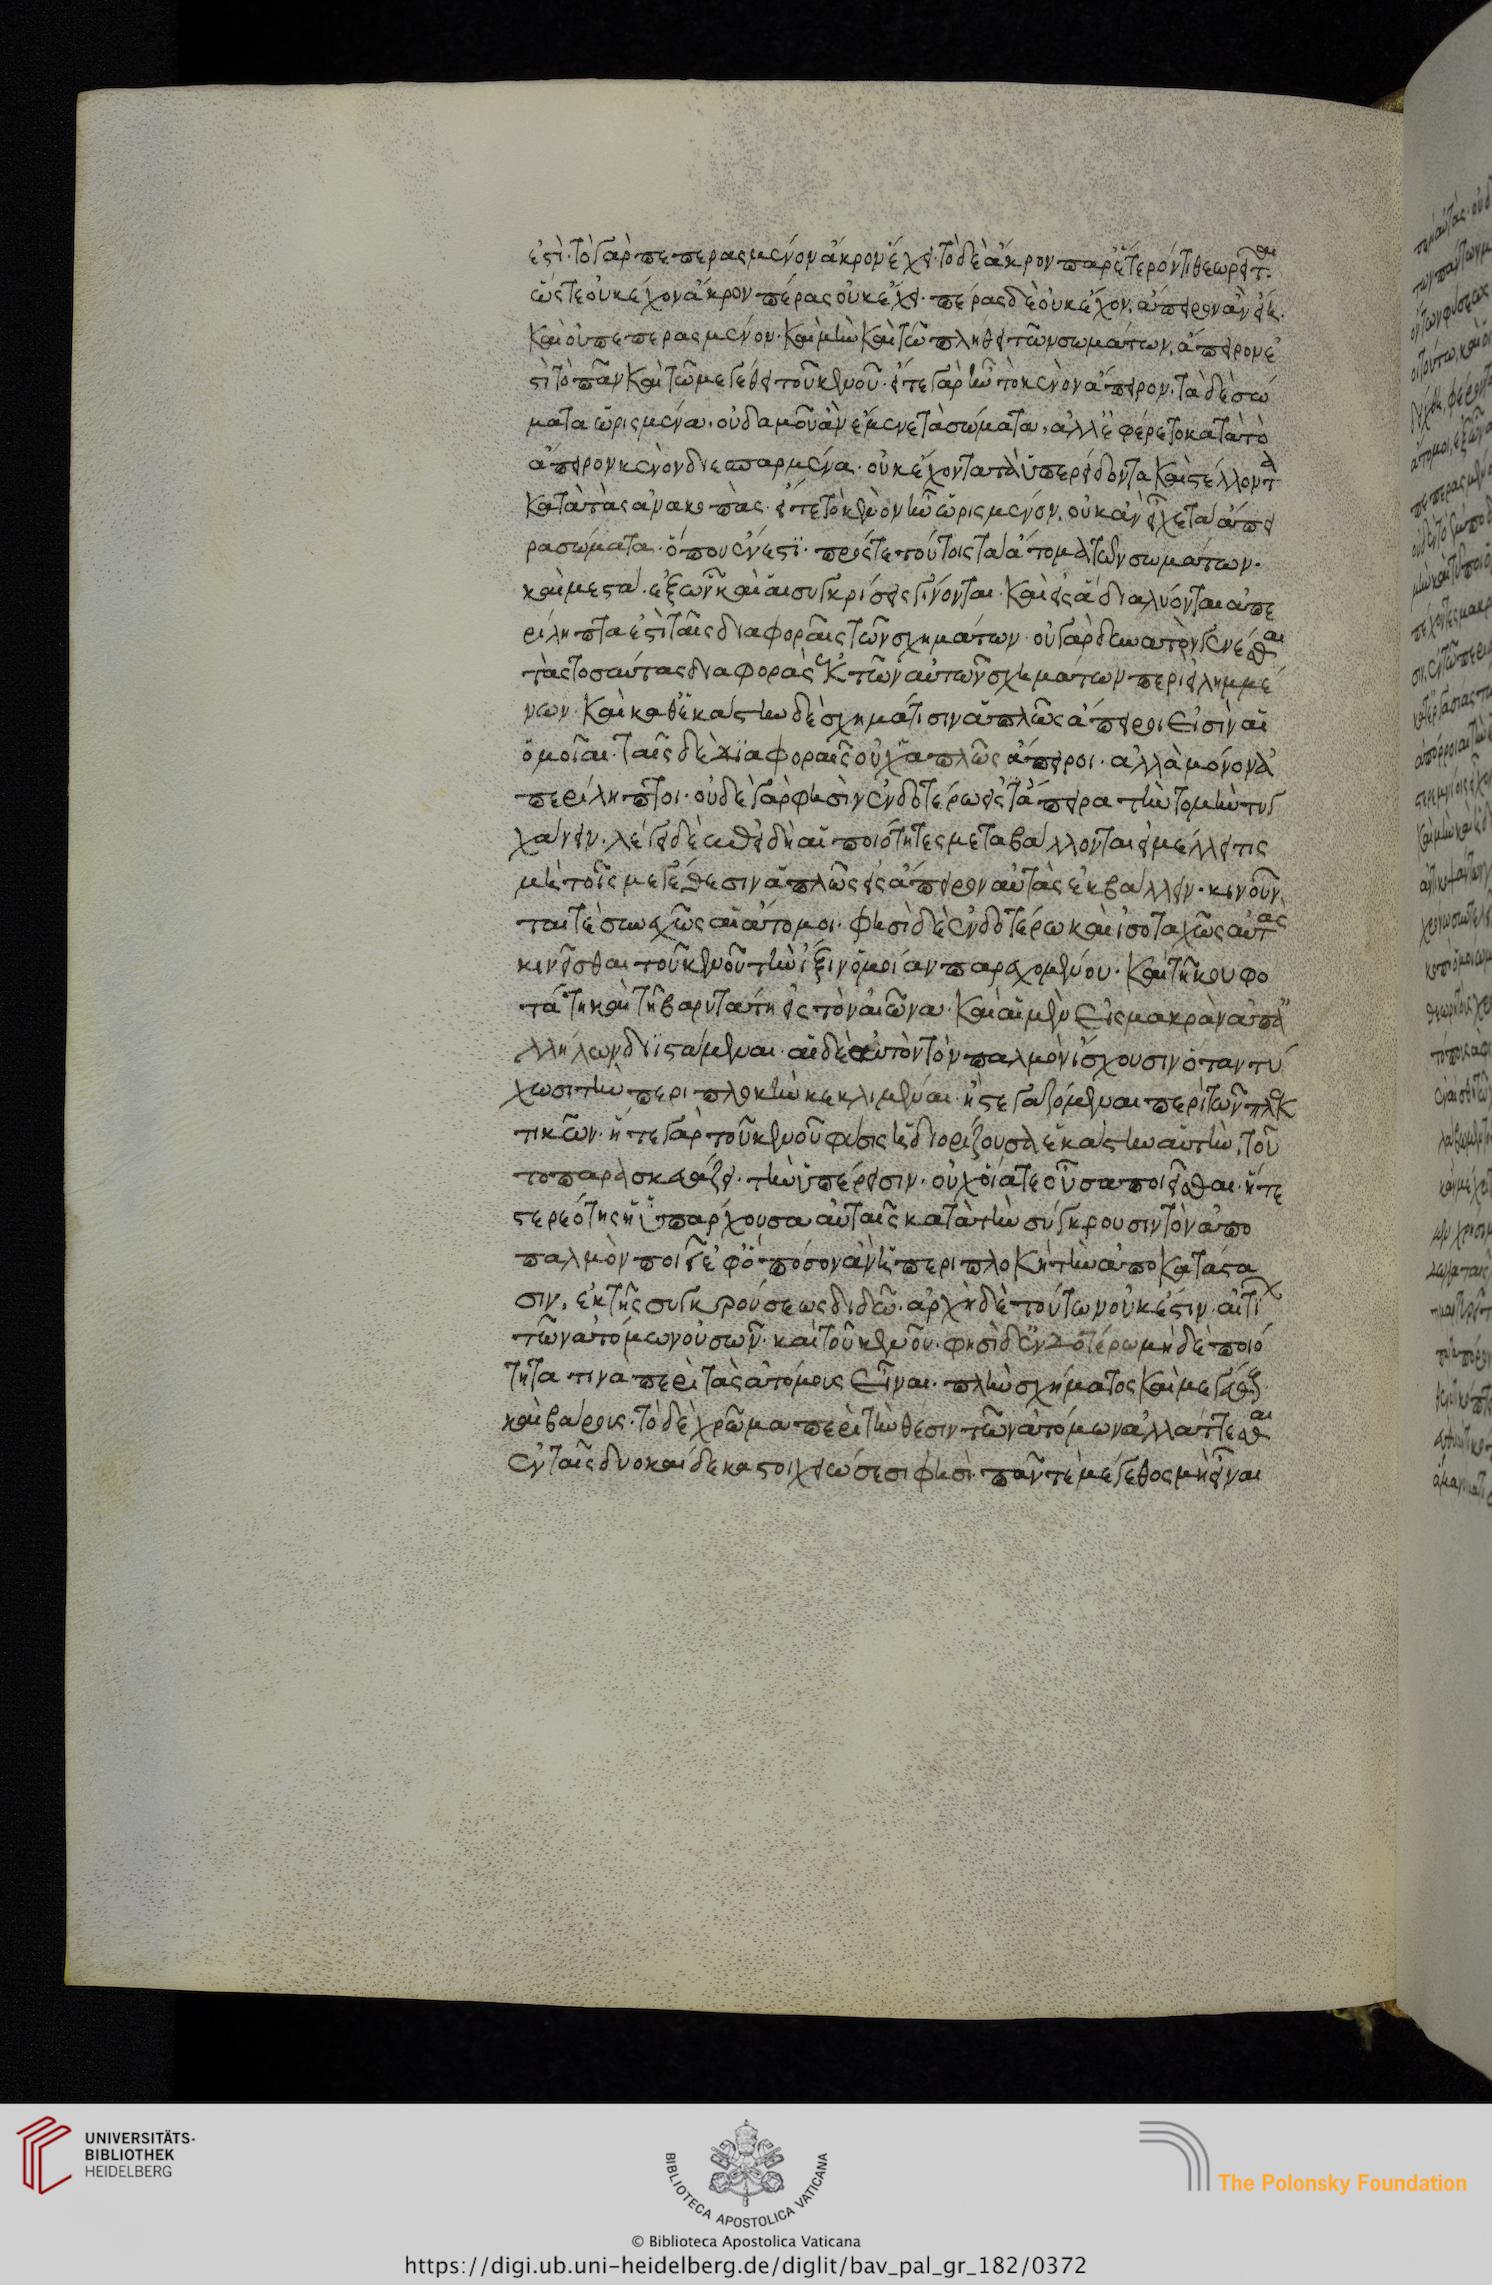 ἐστὶ· τὸ γὰρ πεπερασμένον ἄκρον ἔχει· τὸ δὲ ἄκρον παρ' ἕτερόν τι θεωρεῖται·
ὥστε οὐκ ἔχον ἄκρον πέρας οὐκ ἔχει· πέρας δὲ οὐκ ἔχον, ἄπειρον ἂν εἴη·
καὶ οὐ πεπερασμένον· καὶ μὴν καὶ τῶ πλήθει τῶν σωμάτων, ἄπειρον ἐ
στὶ τὸ πᾶν καὶ τῶ μεγέθει τοῦ κενοῦ· εἴτε γὰρ ἦν τὸ κενὸν ἄπειρον· τὰ δὲ σώ
ματα ὡρισμένα, οὐδαμοῦ ἂν ἔμενε τὰ σώματα, ἀλλ' ἐφέρετο κατὰ τὸ
ἄπειρον κενὸν διεσπαρμένα· οὐκ ἔχοντα τὰ ὑπερείδοντα καὶ στέλλοντα
κατὰ τὰς ἀνακοπάς· εἴτε τὸ κενὸν ἦν ὡρισμένον, οὐκ ἂν εἶχε τὰ ἄπει
ρα σώματα· ὅπου ἐνέστϊ· πρός τε τούτοις τὰ ἄτομα τῶν σωμάτων·
καὶ μεστὰ· ἐξ ὧν καὶ αἱ συγκρίσεις γίνονται· καὶ εἰς ἃ διαλύονται ἀπε
ρίληπτα ἐστὶ ταῖς διαφοραῖς τῶν σχημάτων· οὐ γὰρ δυνατὸν γενέσθαι
τὰς τοσαύτας διαφορὰς ἐκ τῶν αὐτῶν σχημάτων περιειλημμέ
νων· καὶ καθ' ἑκάστην δὲ σχημάτισιν ἁπλῶς ἄπειροι εἰσὶν αἱ
ὅμοιαι· ταῖς δὲ διαφοραῖς οὐχ ἁπλῶς ἄπειροι· ἀλλὰ μόνον ἀ
περίληπτοι· οὐδὲ γὰρ φησὶν ἐνδοτέρω εἰς τὰ ἄπειρα τὴν τομὴν τυγ
χάνειν· λέγει δὲ ἐπειδὴ αἱ ποιότητες μεταβάλλονται εἰ μέλλει τις
μὴ τοῖς μεγέθεσιν ἁπλῶς εἰς ἄπειρον αὐτὰς ἐκβάλλειν· κινοῦν
ταί τε συνεχῶς αἱ ἄτομοι· φησὶ δὲ ἐνδοτέρω καὶ ἰσοταχῶς αὐτὰς
κινεῖσθαι τοῦ κενοῦ τὴν ἶξιν ὁμοίαν παρεχομένου· καὶ τῆ κουφο
τάτη καὶ τῆ βαρυτάτη εἰς τὸν αἰῶνα· καὶ αἱ μὲν εἰς μακρὰν ἀπ' ἀ
λλήλων διϊστάμεναι· αἱ δὲ αὐτὸν τὸν παλμὸν ἴσχουσιν ὅταν τύ
χωσι τὴν περιπλοκὴν κεκλιμέναι· ἢ στεγαζόμεναι περὶ τῶν πλεκ
τικῶν· ἥ τε γὰρ τοῦ κενοῦ φύσις ἡ διορίζουσα ἑκάστην αὐτὴν, τοῦ
το παρασκευάζει· τὴν ὑπέρεισιν· οὐχ οἵα τε οὖσα ποιεῖσθαι· ἥ τε
στερεότης ἡ ὑπάρχουσα αὐταῖς κατὰ τὴν σύγκρουσιν τὸν ἀπο
παλμὸν ποιεῖ· ἐφ' ὁπόσον ἂν ἡ περιπλοκὴ τὴν ἀποκατάστα
σιν, ἐκ τῆς συγκρούσεως διδῶ· ἀρχὴ δὲ τούτων οὐκ ἔστιν· αἰτί
τῶν ἀτόμων οὐσῶν· καὶ τοῦ κενοῦ· φησὶ δ' ἐνδοτέρω μὴ δὲ ποιό
τητα τινὰ περὶ τὰς ἀτόμους εἶναι· πλὴν σχήματος καὶ μεγέθους
καὶ βάρους· τὸ δὲ χρῶμα περὶ τὴν θέσιν τῶν ἀτόμων ἀλλάττεσθαι
ἐν ταῖς δυοκαίδεκα στοιχειώσεσι φησὶ· πᾶν τὲ μέγεθος μὴ εἶναι
UNIVERSITÄTS-
BIBLIOTHEK
HEIDELBERG
BIBLIOTECA APOSTOLICA VATICANA
The Polonsky Foundation
© Biblioteca Apostolica Vaticana
https://digi.ub.uni-heidelberg.de/diglit/bav_pal_gr_182/0372